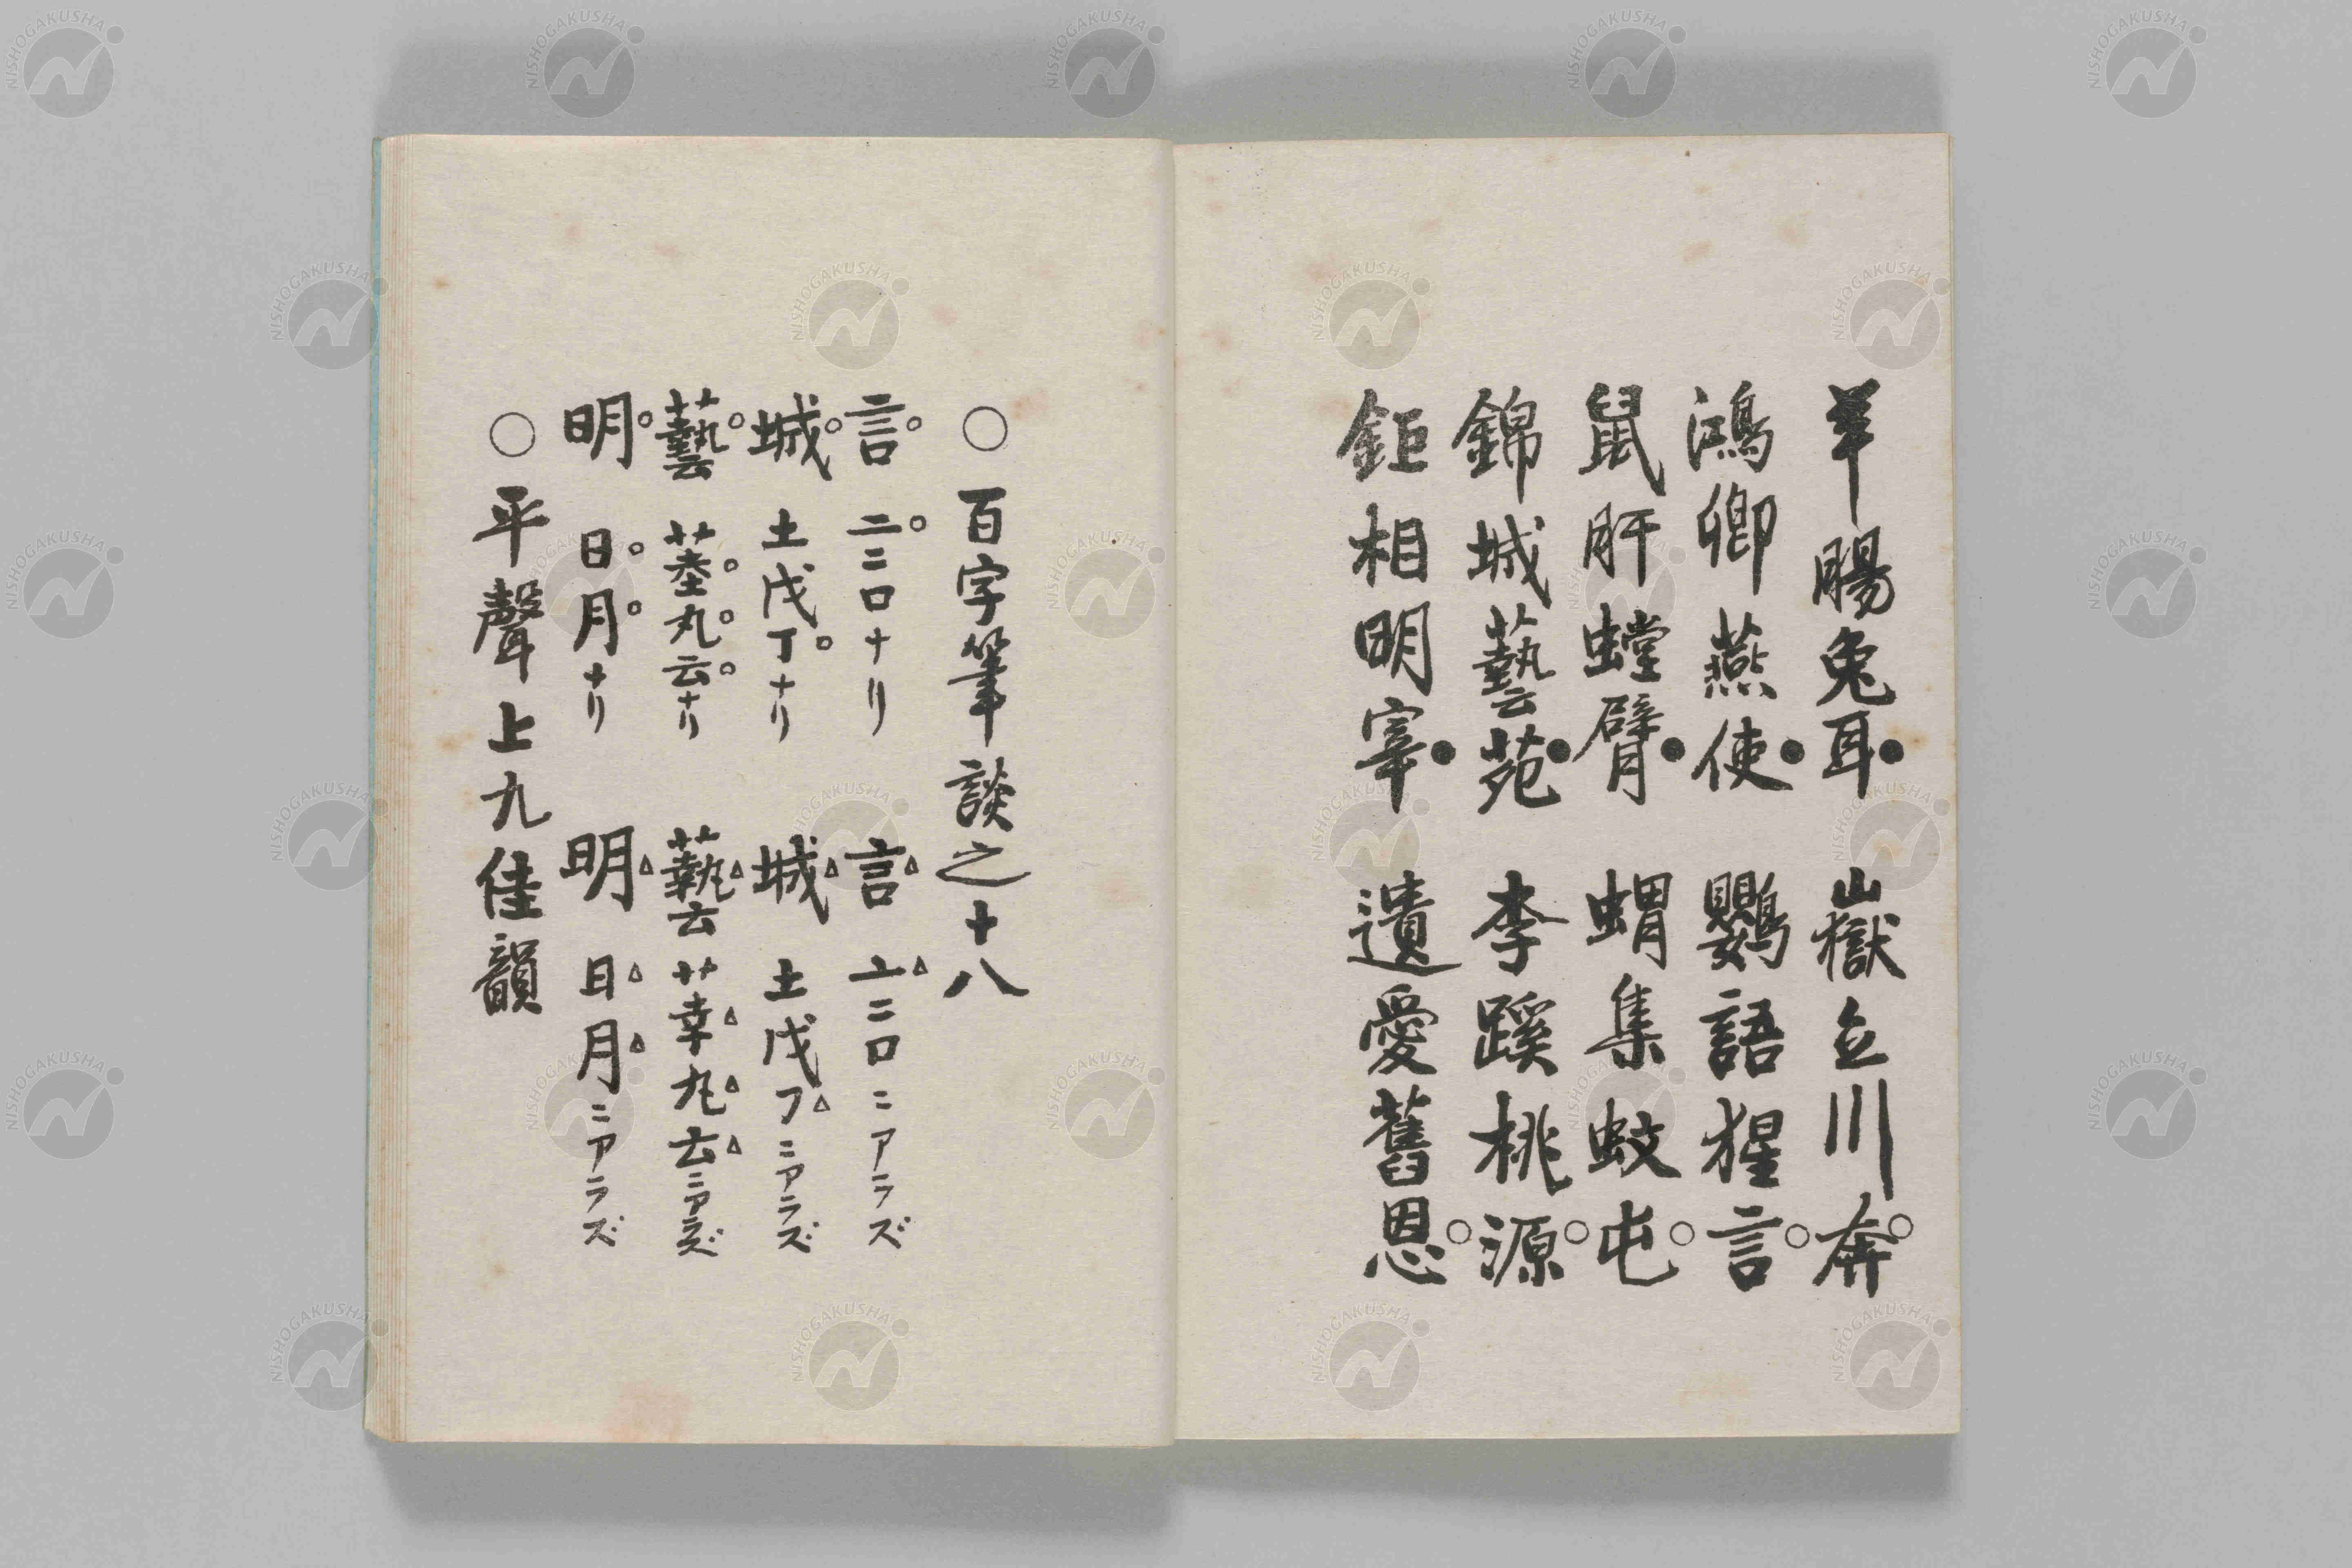 羊腸兔耳● 山嶽立川奔○
鴻卿燕使● 鸚語猩言○
鼠肝螳臂● 蝟集蚊屯○
錦城藝苑● 李蹊桃源○
鉅相明宰● 遺愛舊恩○
○百字筆談之十八
言○ 二○二口ナリ 言△ 亠△二口ニアラズ
城○ 土戊丁○ナリ 城△ 土戊フ△ニアラズ
藝○ 丸○云○ナリ 藝△ 幸△ 云△ニアラズ
明○ 日○月○ナリ 明△ 日△月△ニアラズ
○平聲上九佳韻
NISHOGAKUSHA